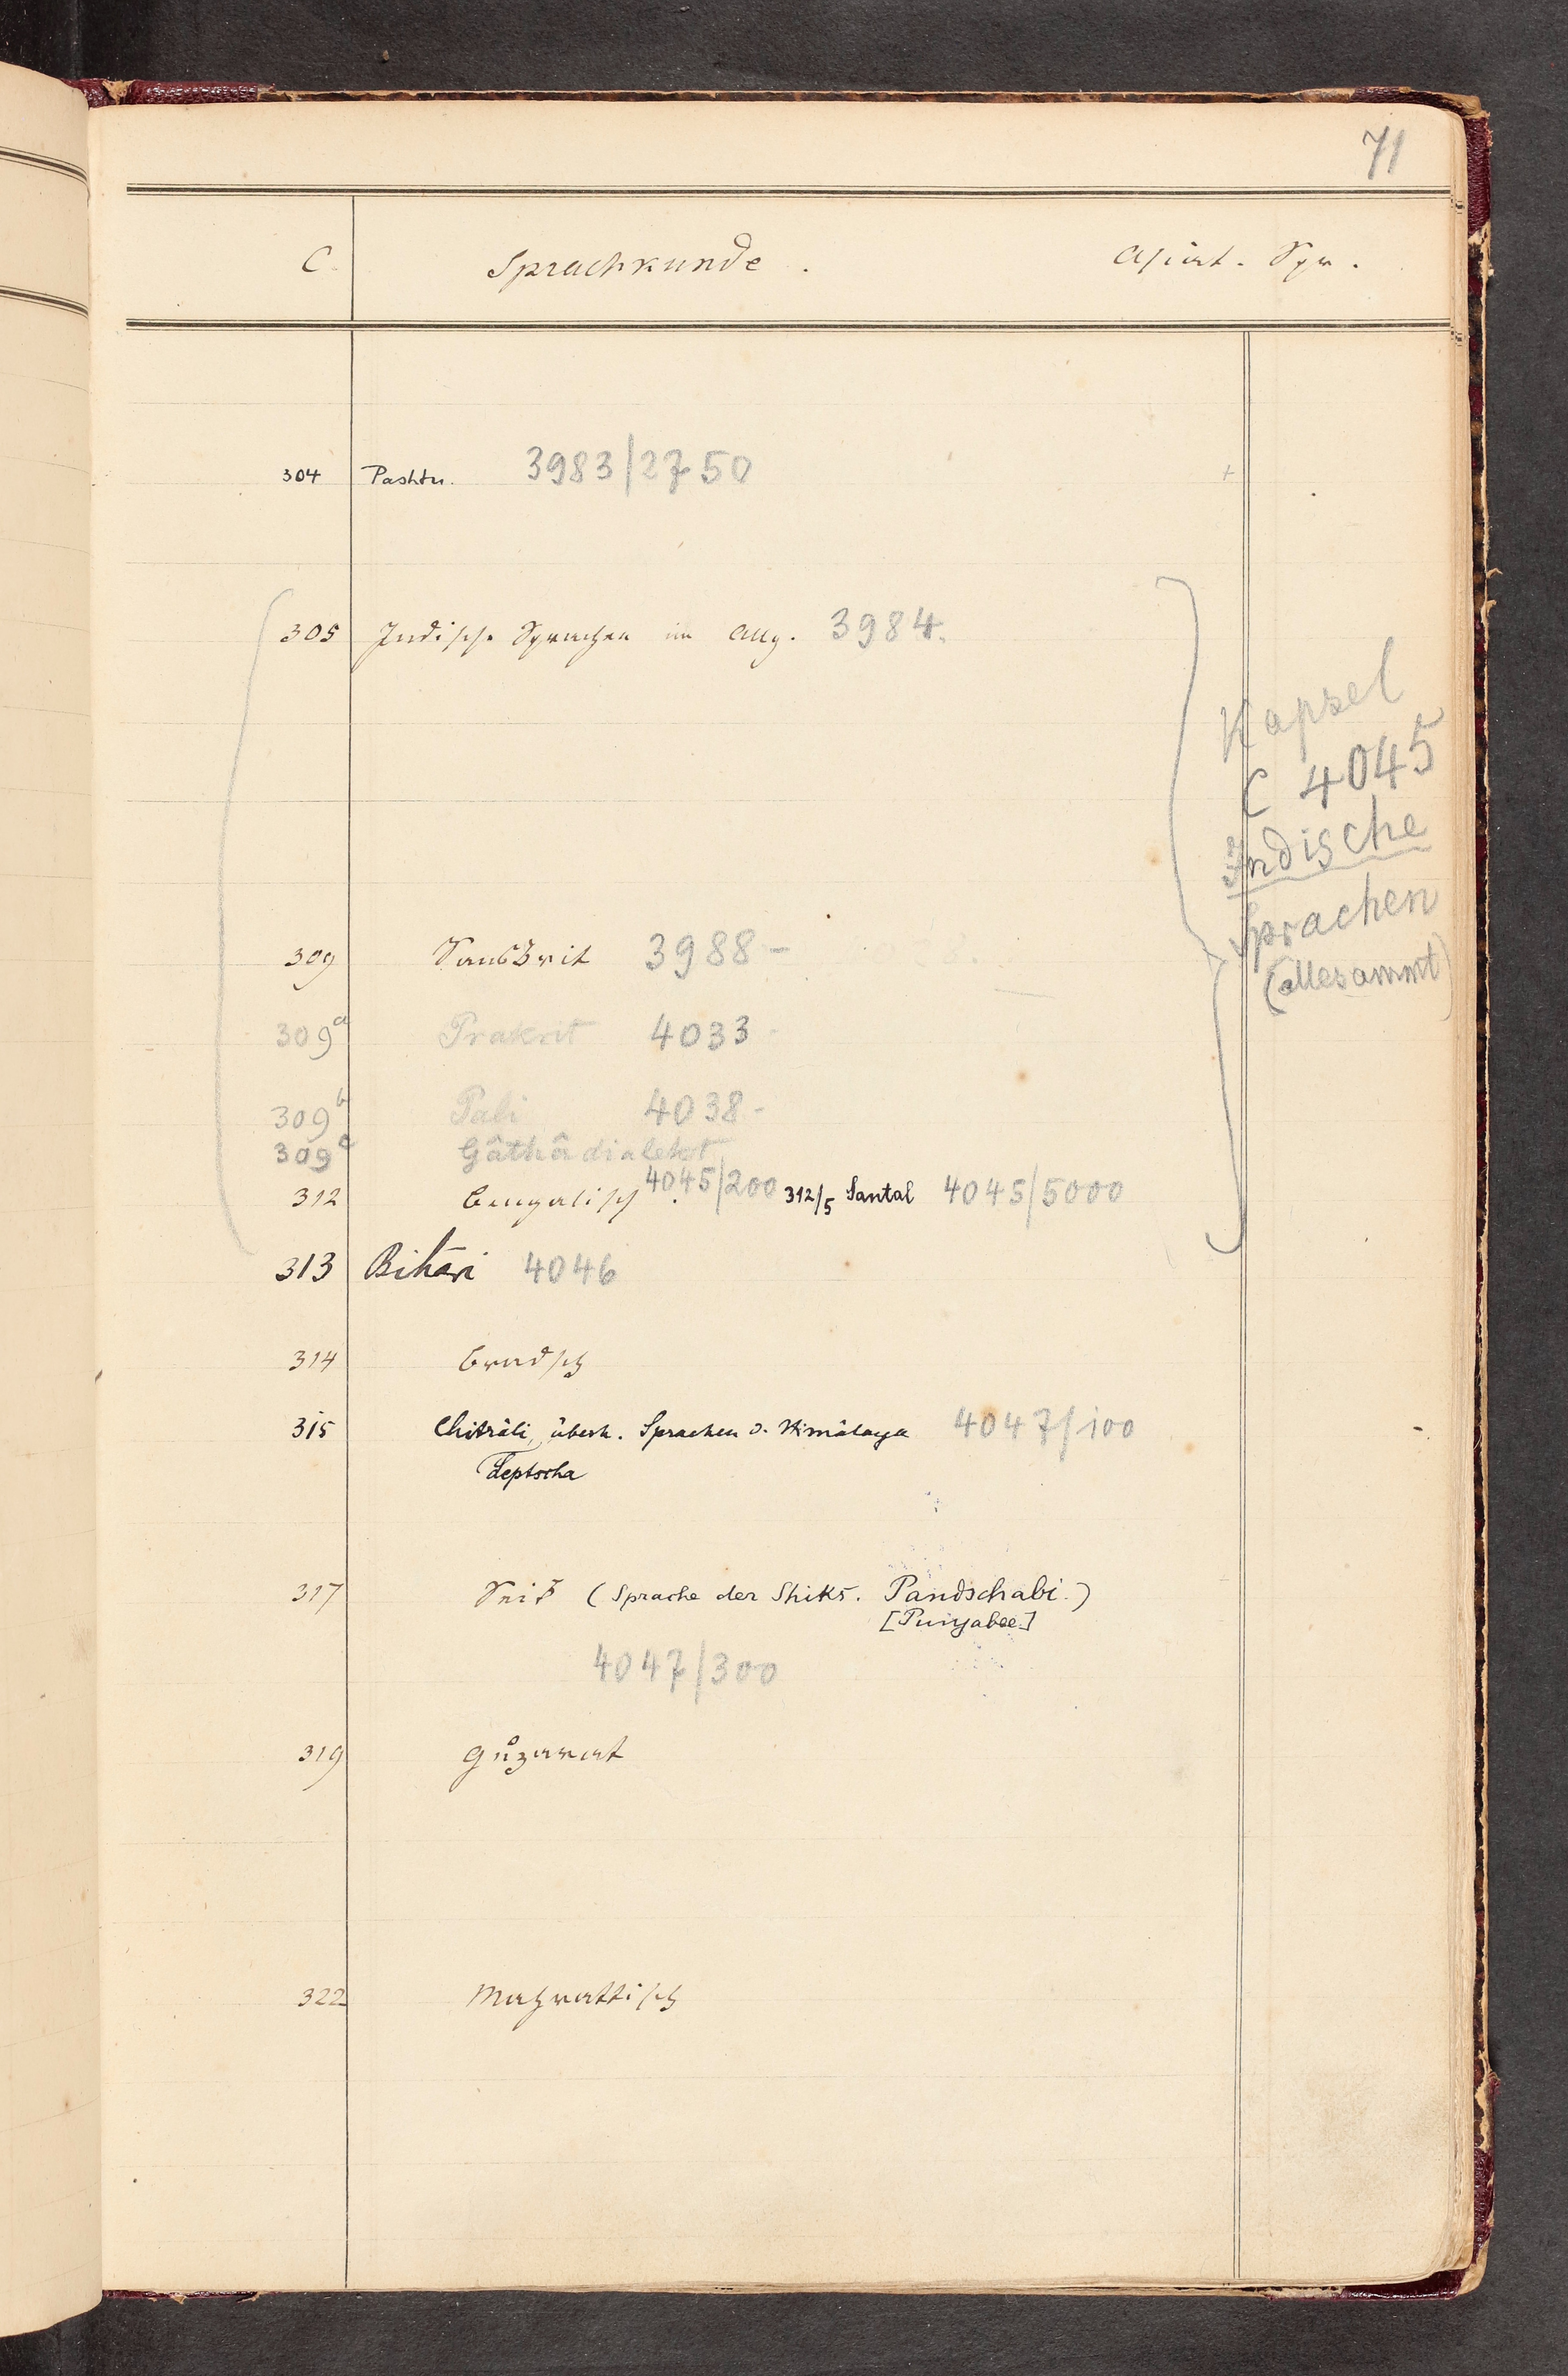 71
C. Sprachkunde. Asiat. Spr.
304 Pashtu. 3983/2750
305 Indische Sprachen im Allg. 3984.
Kapsel
C 4045
Indische
Sprachen
(allesammt)
309 Sanskrit 3988-
309a Prakrit 4033-
309b Pali 4038-
309c Gâthâdialekt
312 Bengalisch 4045/200 312/5 Santal 4045/5000
313 Bihari 4046
314 Bradsch
315 Chitrâli, überh. Sprachen d. Himâlaya 4047/100
Leptscha
317 Seik (Sprache der Shiks. Pandschabi.)
[Punjabee]
4047/300
319 Guzarat
322 Mahrattisch